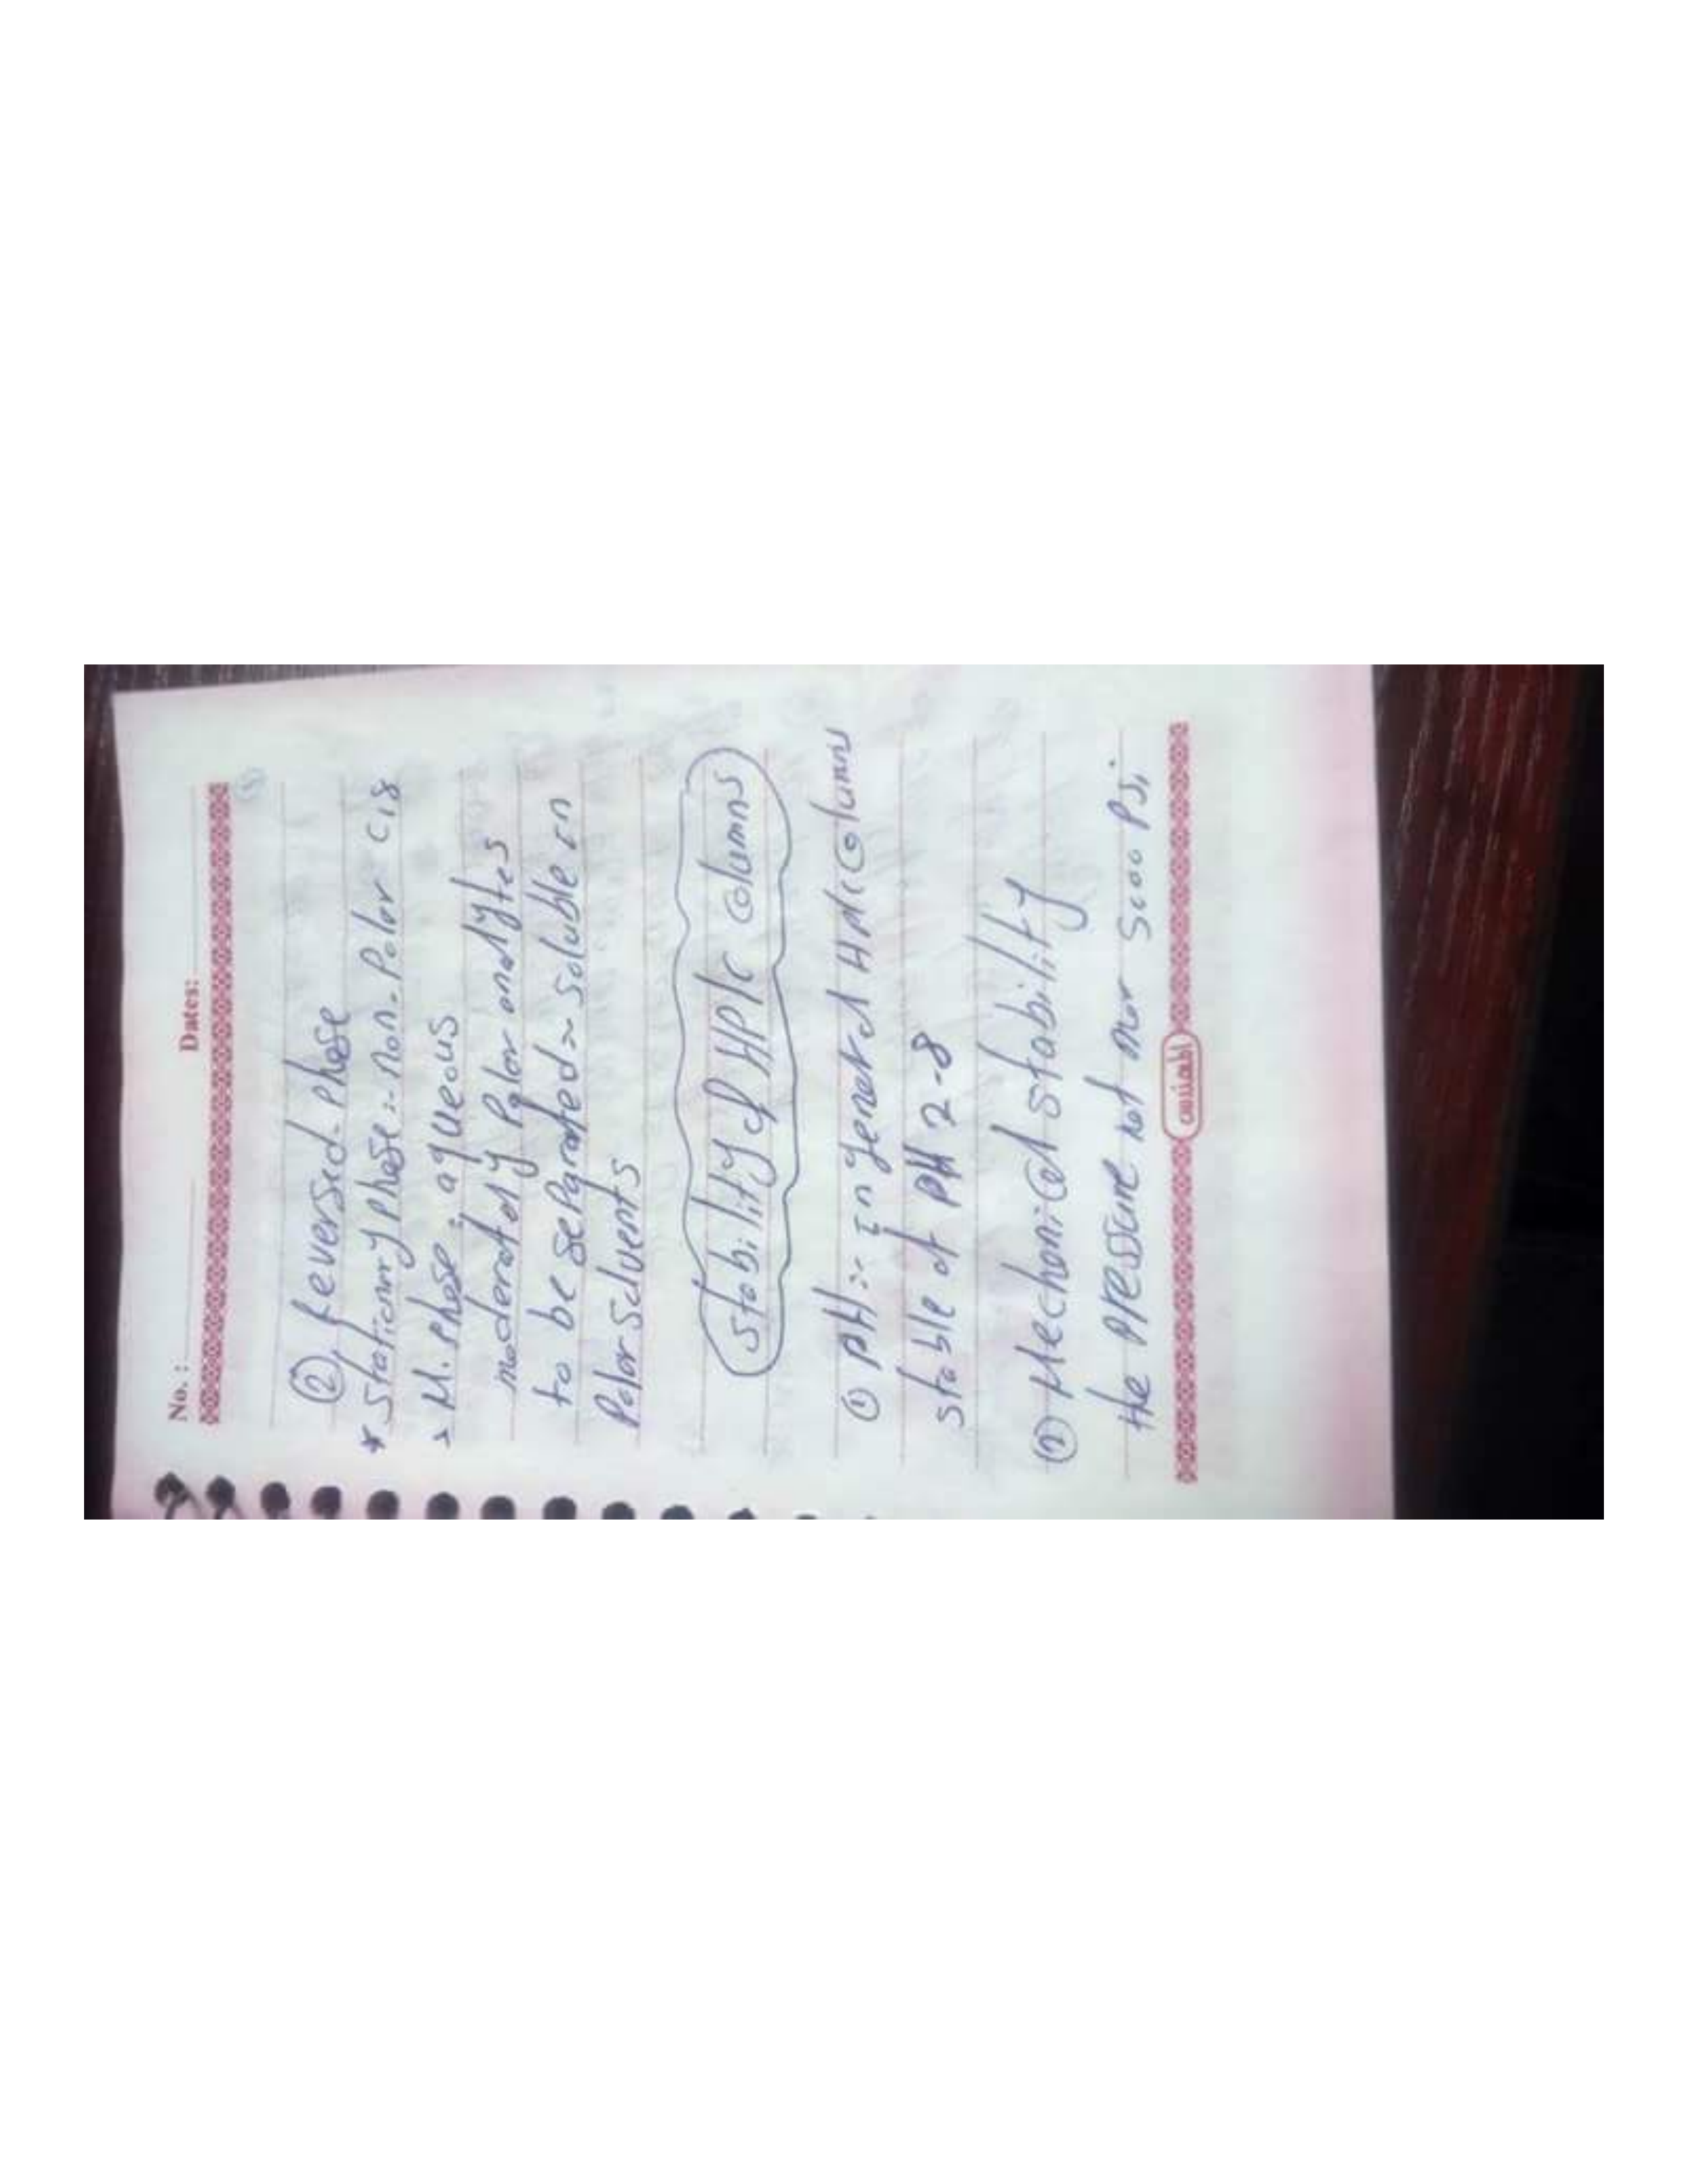 No. : Dates:
② reversed-phase
* Stationary phase:- non-Polar C18
> M. phase: aqueous
moderately Polar analytes
to be separated ~ soluble in
Polar solvents
stability of HPlC columns
① PH:- in general HPlC columns
stable at PH 2-8
② Mechanical stability
the pressure not over 5000 Psi